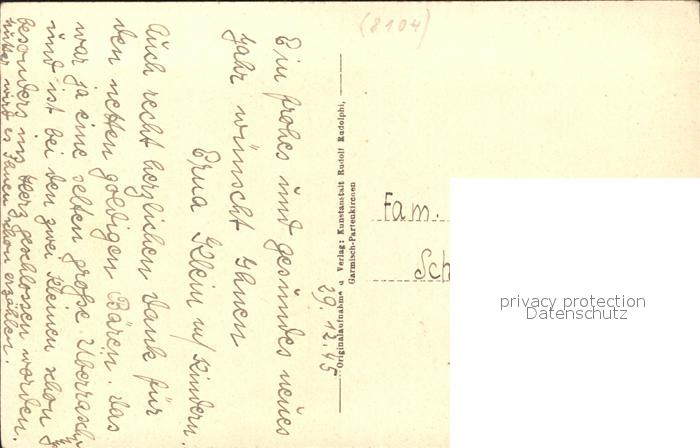 (8104)
29.12.45
Ein frohes und gesundes neues
Jahr wünscht Ihnen
Erna Klein u/ Kindern.
Auch recht herzlichen Dank für
den netten goldigen Bären. Das
war ja eine selten große Überrasch.
und ist bei den zwei Kleinen schon
besonders ins Herz geschlossen worden.
wird es Ihnen schon erzählen.
Originalaufnahme u Verlag: Kunstanstalt Rudolf Rudolphi,
Garmisch-Partenkirchen
Fam.
Sch
privacy protection
Datenschutz